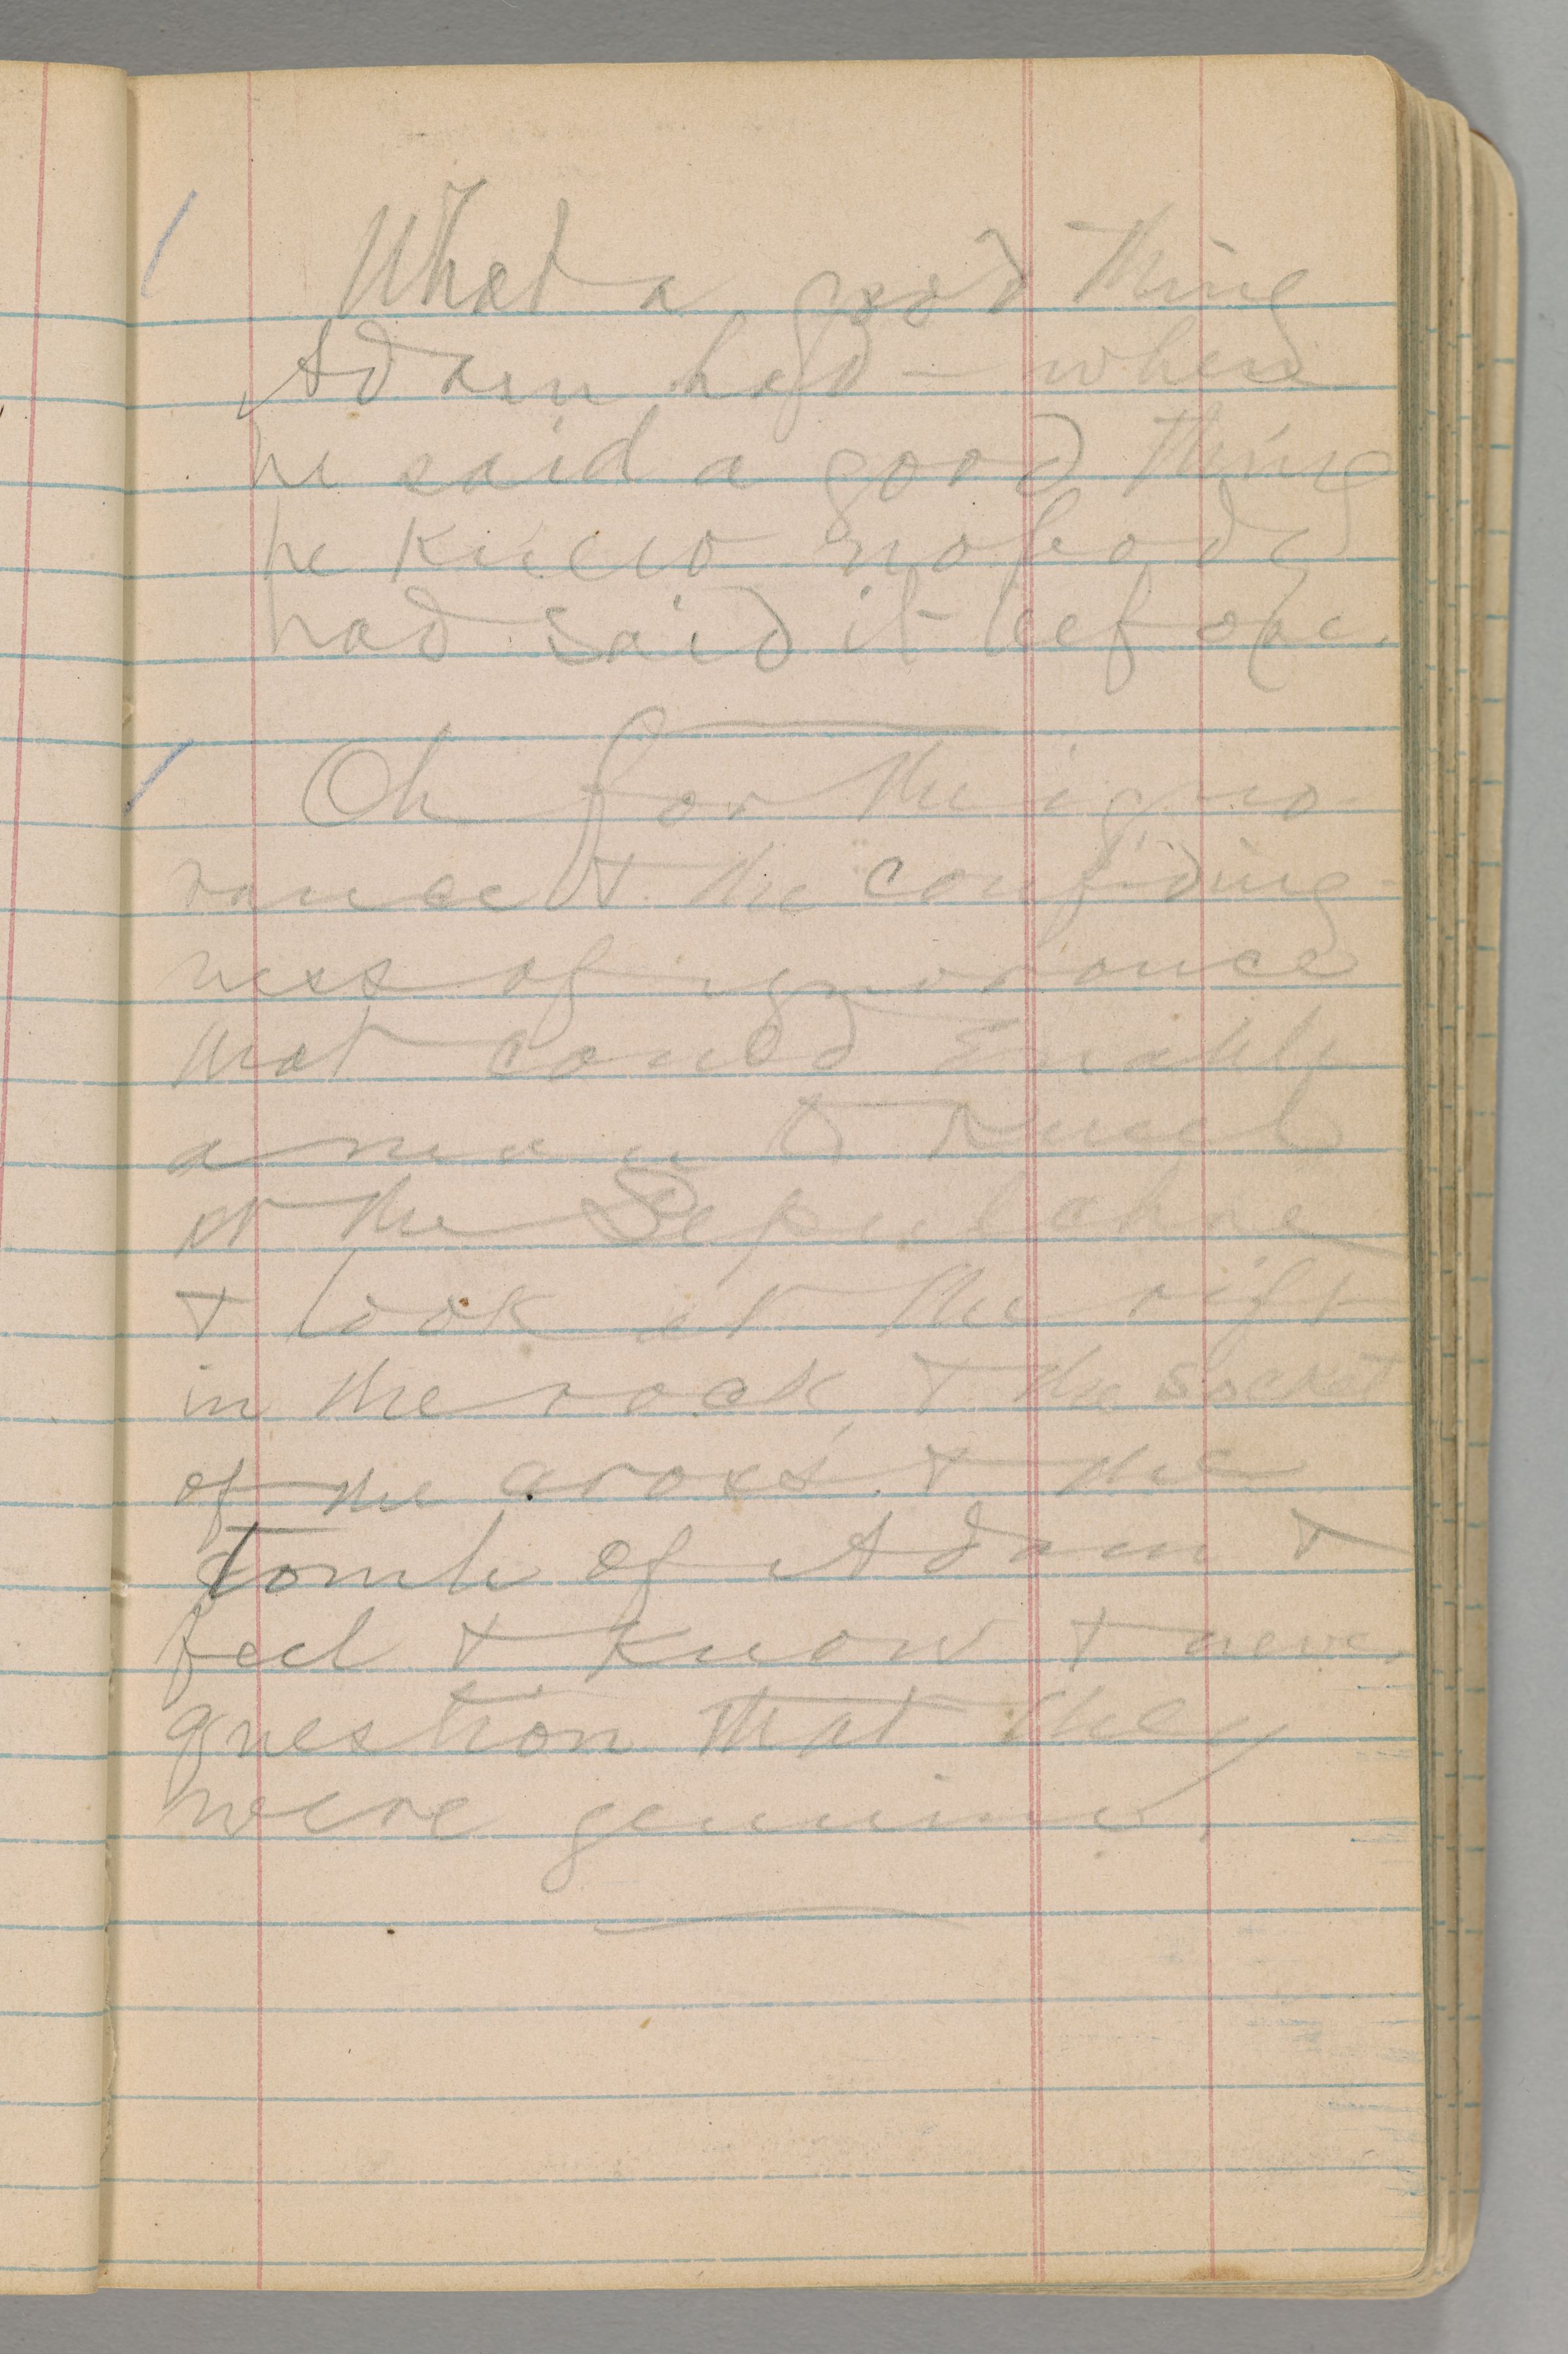 What a good thing
Adam had — when
he said a good thing
he knew nobody
had said it before.
Oh for the igno-
rance & the confiding-
ness of ignorance
that could enable
a man to kneel
at the Sepulchre
& look at the rift
in the rock, & the socket
of the cross & the
tomb of Adam &
feel & know & never
question that they
were genuine.